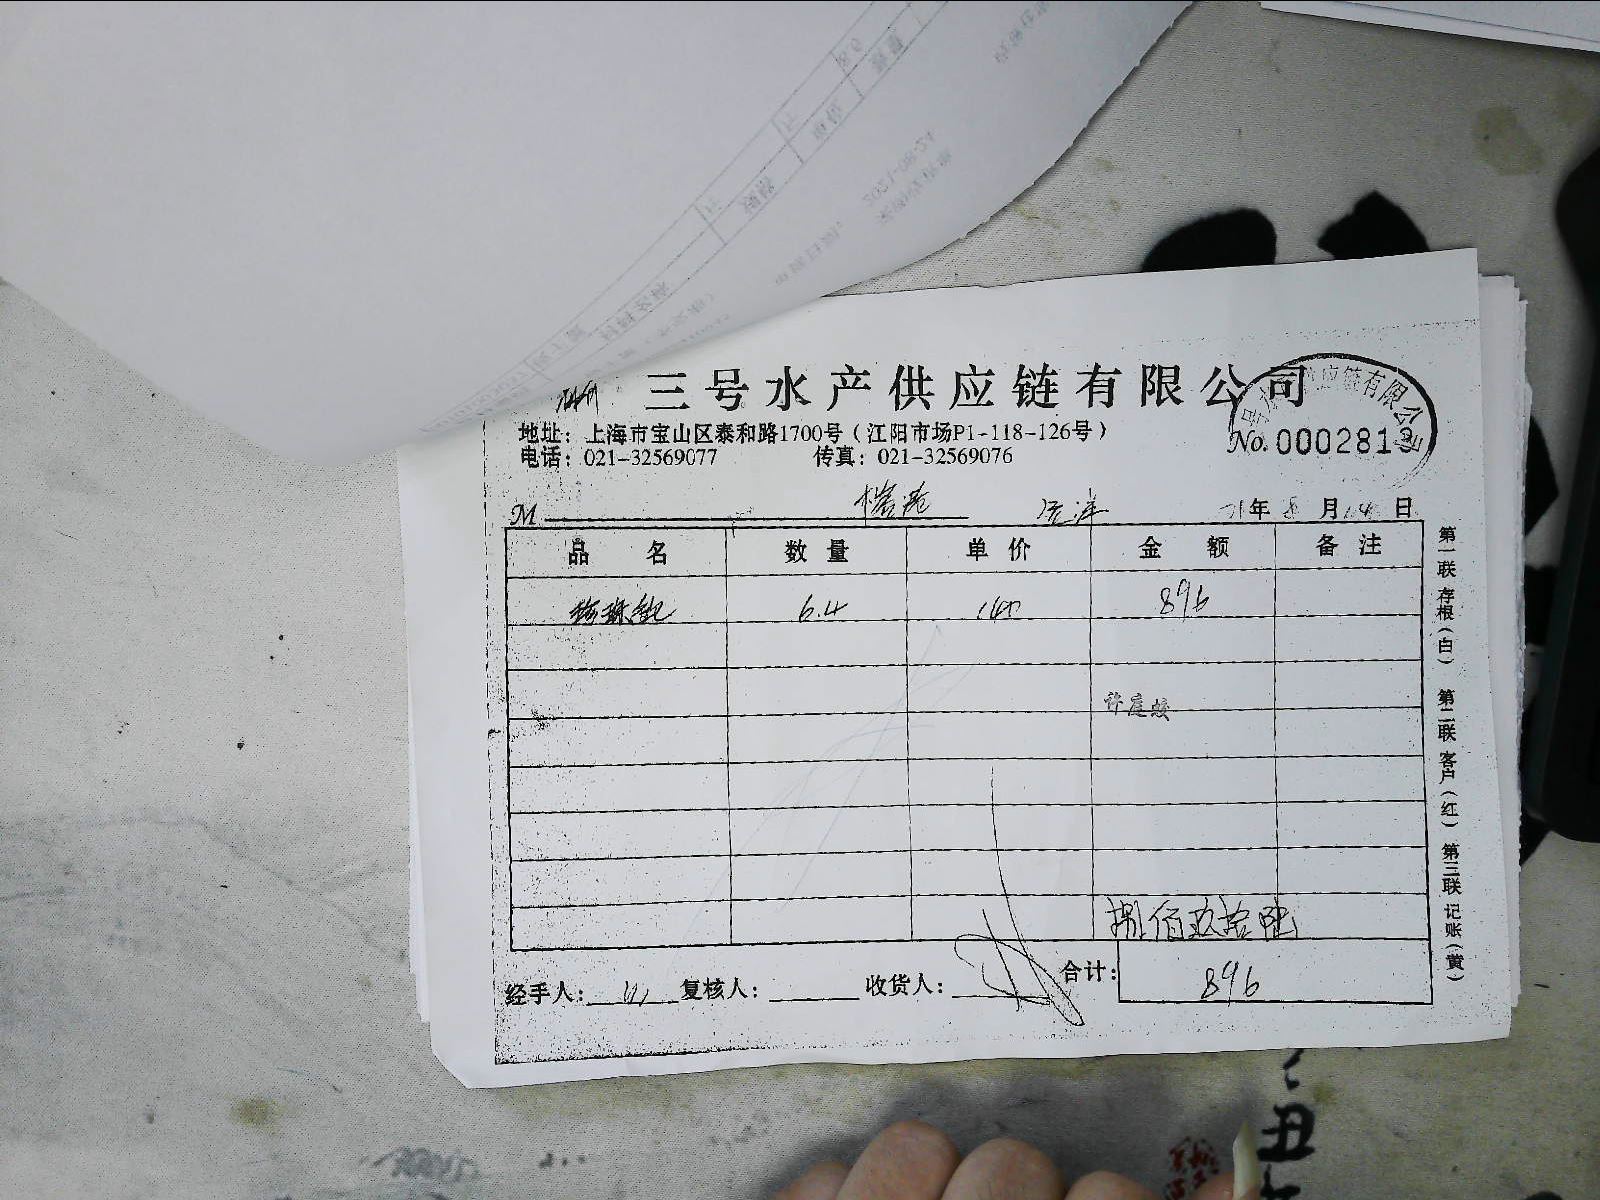 三号水产供应链有限公司
地址：上海市宝山区泰和路1700号（江阳市场P1-118-126号）
No. 0002813
电话：021-32569077 传真：021-32569076
应链有限公司
M 榕港 21年8月14日
品名 数量 单价 金额 备注
珍珠鲍 6.4 140 896
许庭蛟
捌佰玖拾陆
经手人： 复核人： 收货人： 合计： 896
第一联 存根（白） 第二联 客户（红） 第三联 记账（黄）
丑